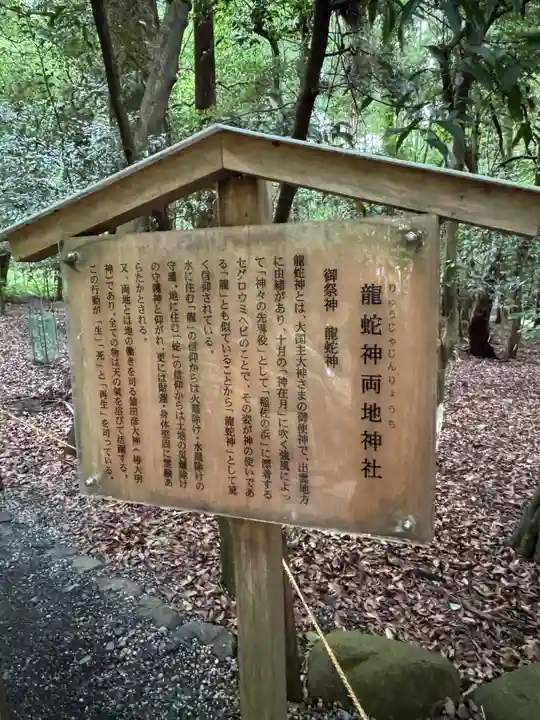 りゅうじゃじんりょうち
龍蛇神両地神社
御祭神　龍蛇神
龍蛇神とは、大国主大神さまの御使神で、出雲地方
に由緒があり、十月の「神在月」に吹く強風によっ
て「神々の先導役」として「稲佐の浜」に漂着する
セグロウミヘビのことで、その姿が神の使いであ
る「龍」とも似ていることから「龍蛇神」として篤
く信仰されている。
水に住む「龍」の信仰からは火難除け・水難除けの
守護、地に住む「蛇」の信仰からは土地の災難除け
の守護神と仰がれ、更には財運・身体堅固に霊験あ
らたかとされる。
又、両地とは天地の働きを司る猿田彦大神（椿大明
神）であり、全ての物は天の氣を浴びて活躍する。
この行動が、「生」「死」と「再生」を司っている。